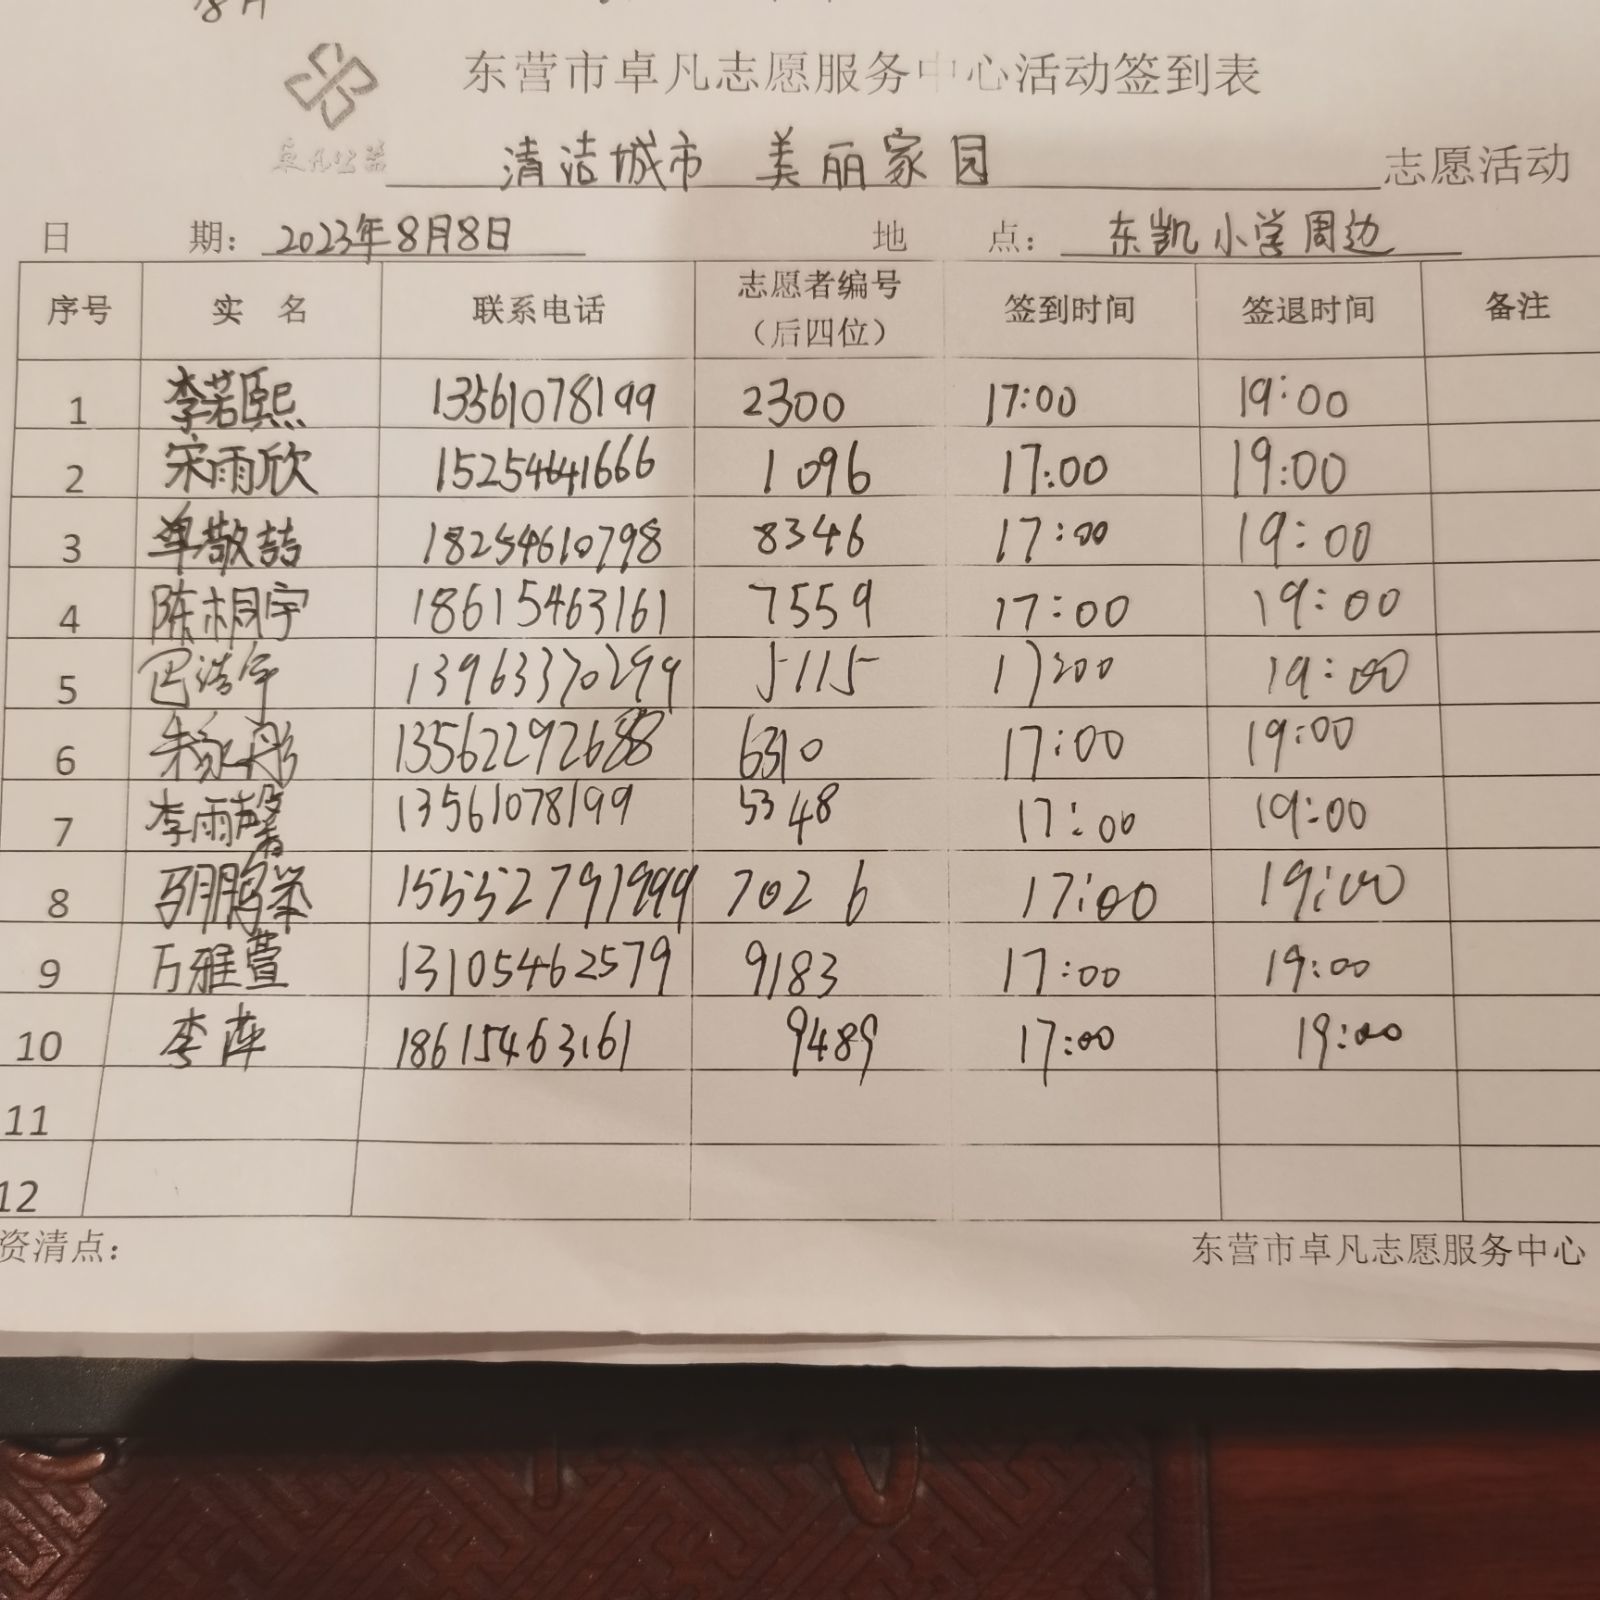 8月
东营市卓凡志愿服务中心活动签到表
卓凡公益
清洁城市 美丽家园 志愿活动
日 期: 2023年8月8日 地 点: 东凯小学周边
序号 实 名 联系电话 志愿者编号（后四位） 签到时间 签退时间 备注
1 李若熙 13561078199 2300 17:00 19:00
2 宋雨欣 15254641666 1096 17:00 19:00
3 单敬喆 18254610798 8346 17:00 19:00
4 陈桐宇 18615463161 7559 17:00 19:00
5 巴浩宇 13963370299 5115 17:00 19:00
6 朱永彤 13562292688 6310 17:00 19:00
7 李雨馨 13561078199 5348 17:00 19:00
8 马鹏举 15552791999 7026 17:00 19:00
9 万雅萱 13105462579 9183 17:00 19:00
10 李萍 18615463161 9489 17:00 19:00
11
12
资清点:
东营市卓凡志愿服务中心